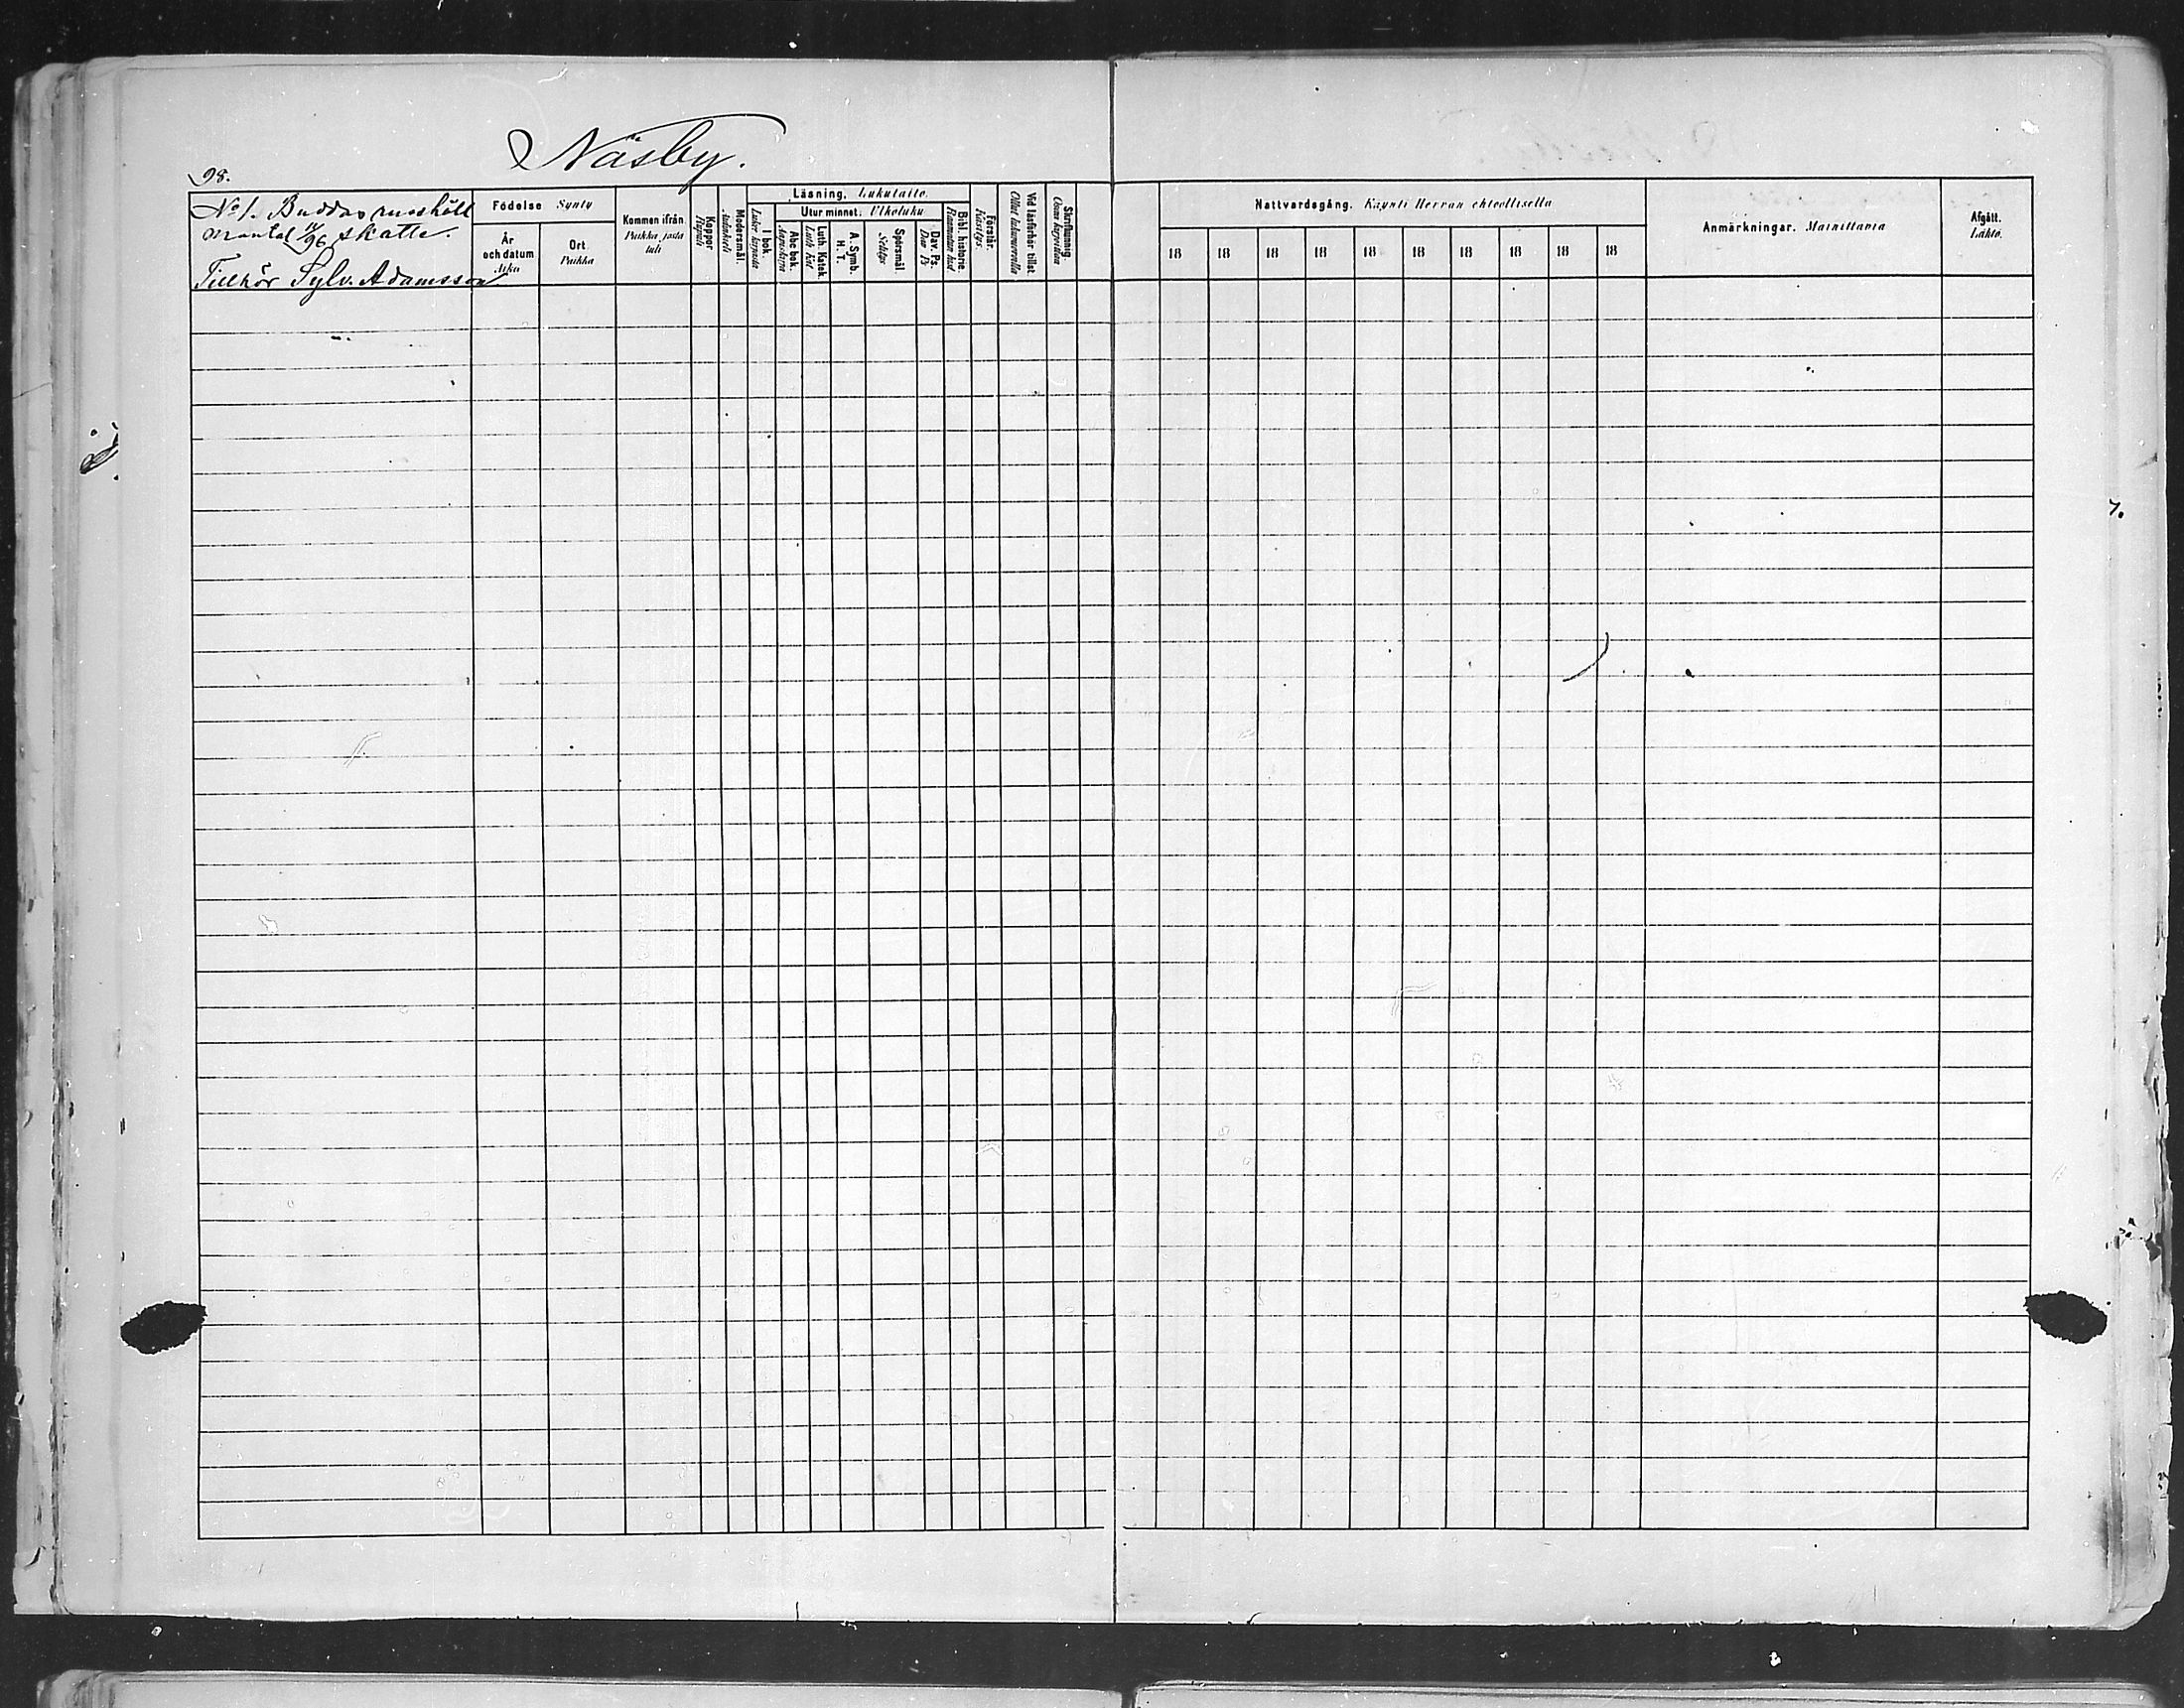 Näsby.
98.
No 1. Buddas rusthåll
mantal /96 skatte.
Tillhör Sylv. Adamsson
Födelse Synty
År och datum Aika
Ort Paikka
Kommen ifrån Paikka josta tuli
Koppor Rupuli
Modersmål. Äidinkieli
Läsning. Lukutaito.
I bok.
Utur minnet. Ulkoluku
Abc bok. Aapiskirja
Luth. Katek. Luth Kat
A. Symb. H. T.
Spörsmål. Selitys
Dav. Ps. Dav Ps
Bibl. historie. Raamatun hist
Förstår. Käsitys.
Vid läsförhör tillst. Ollut lukuvuorolla
Skrifkunnig. Osaa kirjoittaa
Nattvardsgång. Käynti Herran ehtoollisella
18 18 18 18 18 18 18 18 18 18
Anmärkningar. Muistettavia
Afgått. Lähtö.